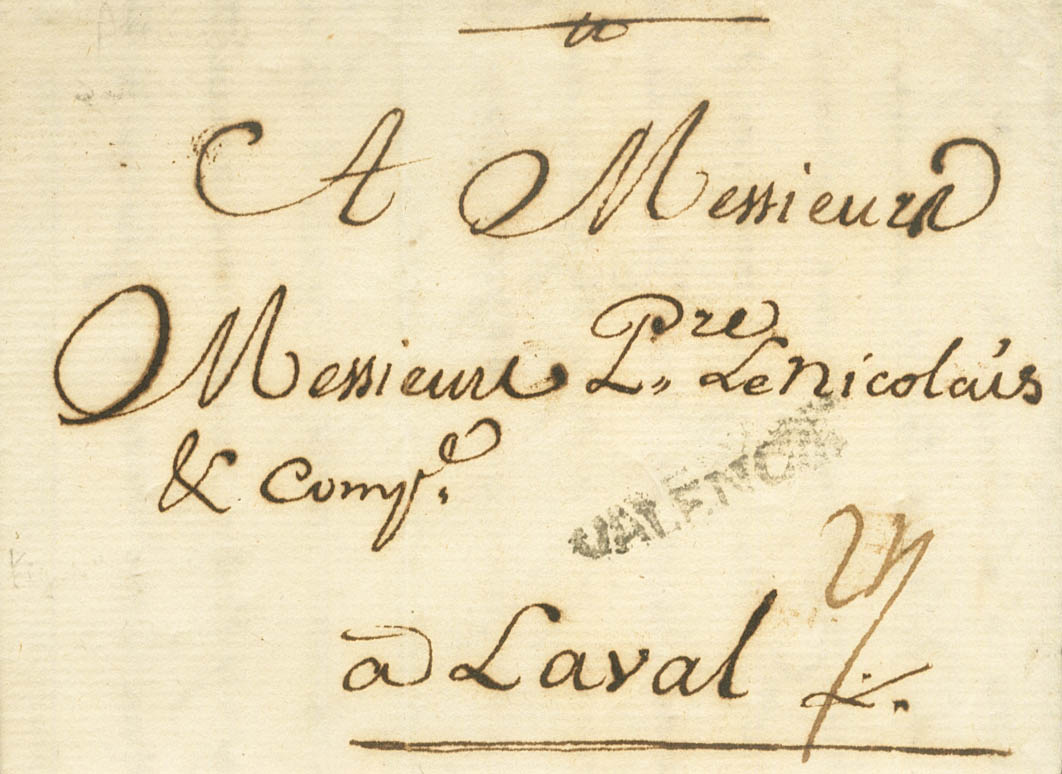 A Messieurs
Messieurs Pre L. Le nicolais
& Compe.
VALENCIA
à Laval